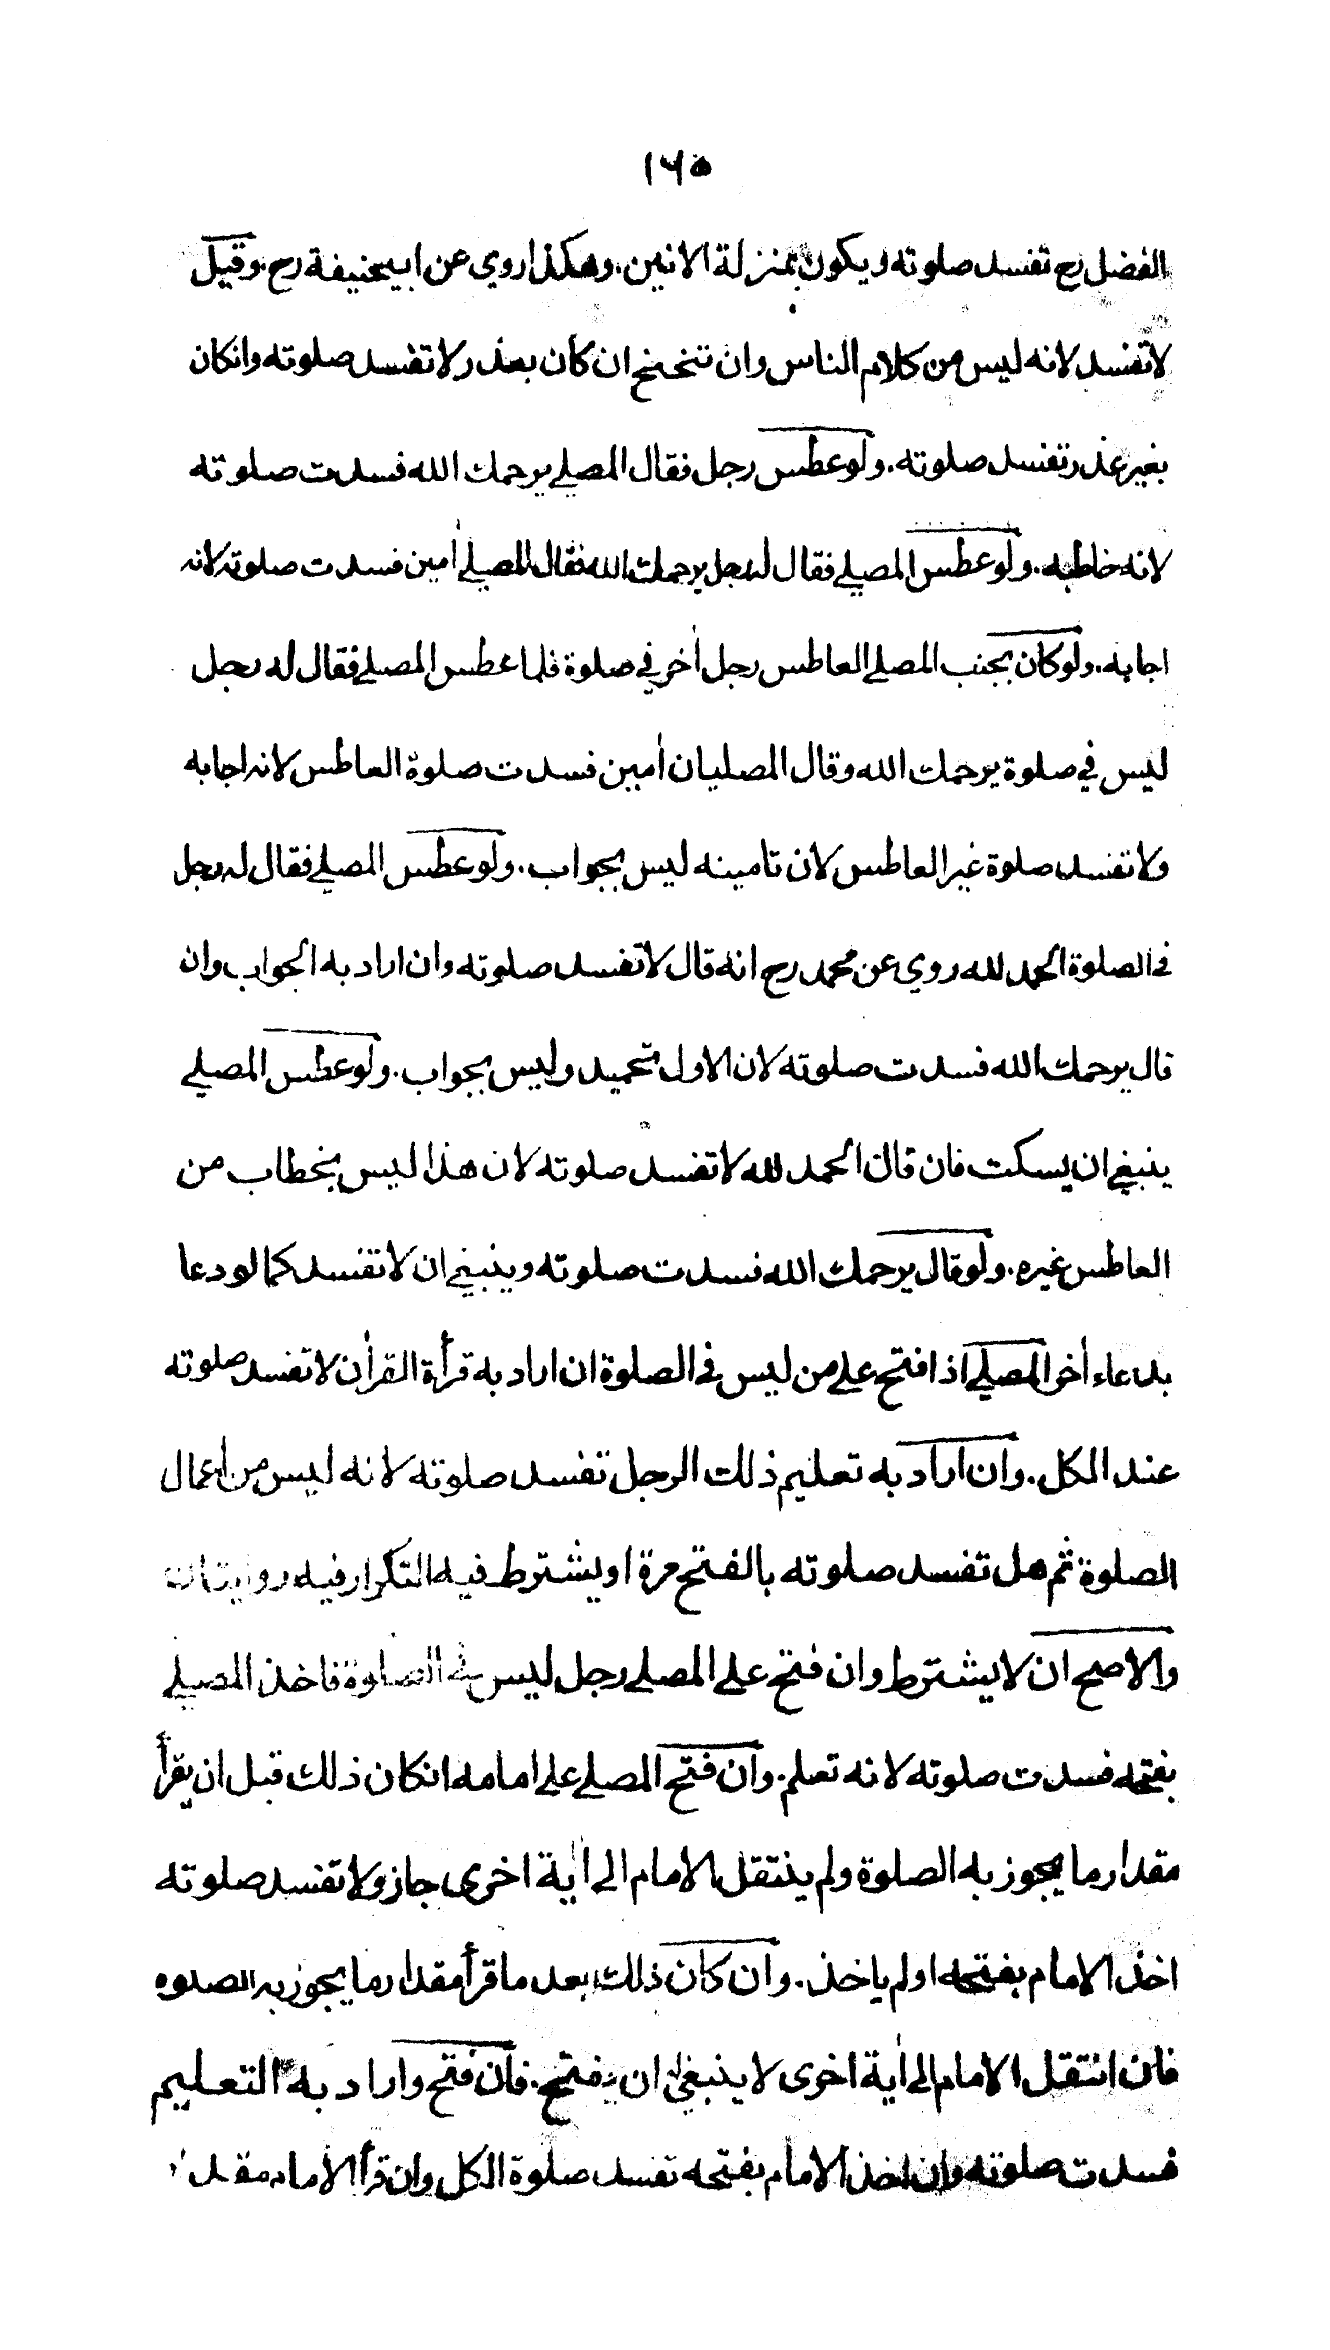 ١٦٥
الفضل رح تفسد صلوته ويكون بمنزلة الانين. وهكذا روي عن ابيحنيفة رح. وقيل
لا تفسد لانه ليس من كلام الناس وان تنحنح ان كان بعذر لا تفسد صلوته وانكان
بغير عذر تفسد صلوته. ولو عطس رجل فقال المصلي يرحمك الله فسدت صلوته
لانه خاطبه. ولو عطس المصلي فقال له رجل يرحمك الله فقال المصلي أمين فسدت صلوته لانه
اجابه. ولو كان بجنب المصلي العاطس رجل أخر في صلوة فلما عطس المصلي فقال له رجل
ليس في صلوة يرحمك الله وقال المصليان أمين فسدت صلوة العاطس لانه اجابه
ولا تفسد صلوة غير العاطس لان تامينه ليس بجواب. ولو عطس المصلي فقال له رجل
في الصلوة الحمد لله روي عن محمد رح انه قال لا تفسد صلوته وان اراد به الجواب وان
قال يرحمك الله فسدت صلوته لان الاول تحميد وليس بجواب. ولو عطس المصلي
ينبغي ان يسكت فان قال الحمد لله لا تفسد صلوته لان هذا ليس بخطاب من
العاطس غيره. ولو قال يرحمك الله فسدت صلوته وينبغي ان لا تفسد كما لو دعا
بدعاء أخر المصلي اذا فتح على من ليس في الصلوة ان اراد به قرأة القرأن لا تفسد صلوته
عند الكل. وان اراد به تعليم ذلك الرجل تفسد صلوته لانه ليس من أعمال
الصلوة ثم هل تفسد صلوته بالفتح مرة او يشترط فيه التكرار فيه روايتان
والاصح ان لا يشترط وان فتح على المصلي رجل ليس في الصلوة فاخذ المصلي
بفتحه فسدت صلوته لانه تعلم. وان فتح المصلي على امامه انكان ذلك قبل ان يقرأ
مقدار ما يجوز به الصلوة ولم ينتقل الامام الى أية اخرى جاز ولا تفسد صلوته
اخذ الامام بفتحه اولم ياخذ. وان كان ذلك بعد ما قرأ مقدار ما يجوز به الصلوه
فان انتقل الامام الى أية اخرى لا ينبغي ان يفتح. فان فتح واراد به التعليم
فسدت صلوته وان اخذ الامام بفتحه تفسد صلوة الكل وان قرأ الامام مقدار